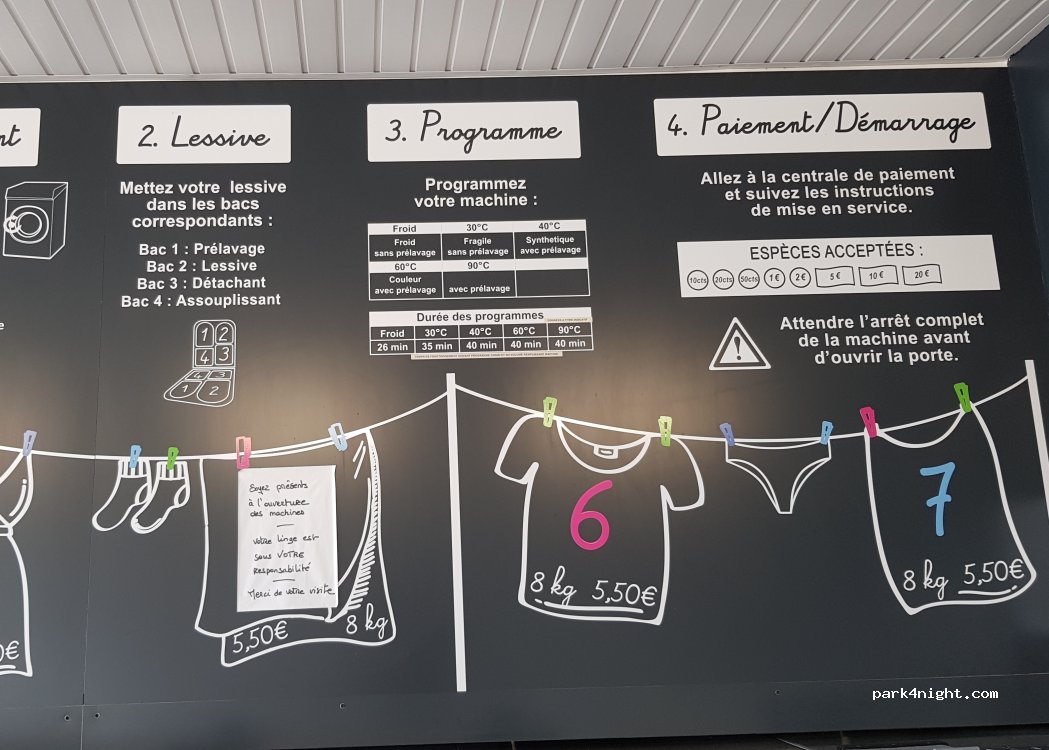 nt
2. Lessive
Mettez votre lessive
dans les bacs
correspondants :
Bac 1 : Prélavage
Bac 2 : Lessive
Bac 3 : Détachant
Bac 4 : Assouplissant
1 2
4 3
4 3
1 2
3. Programme
Programmez
votre machine :
Froid 30°C 40°C
Froid Fragile Synthetique
sans prélavage sans prélavage avec prélavage
60°C 90°C
Couleur
avec prélavage avec prélavage
Durée des programmes
Froid 30°C 40°C 60°C 90°C
26 min 35 min 40 min 40 min 40 min
4. Paiement/Démarrage
Allez à la centrale de paiement
et suivez les instructions
de mise en service.
ESPÈCES ACCEPTÉES :
10cts 20cts 50cts 1€ 2€ 5€ 10€ 20€
Attendre l'arrêt complet
de la machine avant
d'ouvrir la porte.
e
0€
Soyez présents
à l'ouverture
des machines
Votre linge est
sous VOTRE
responsabilité
Merci de votre visite
5,50€ 8 kg
6
8 kg 5,50€
7
8 kg 5,50€
park4night.com